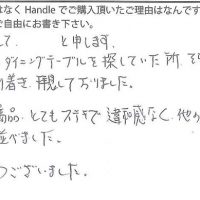 はなく Handle でご購入頂いたご理由はなんです
ご自由にお書き下さい。
して、　　と申します。
ダイニングテーブルを探していた所、
り着き、拝観しておりました。
商品、とてもステキで違和感なく、他の
並べました。
うございました。